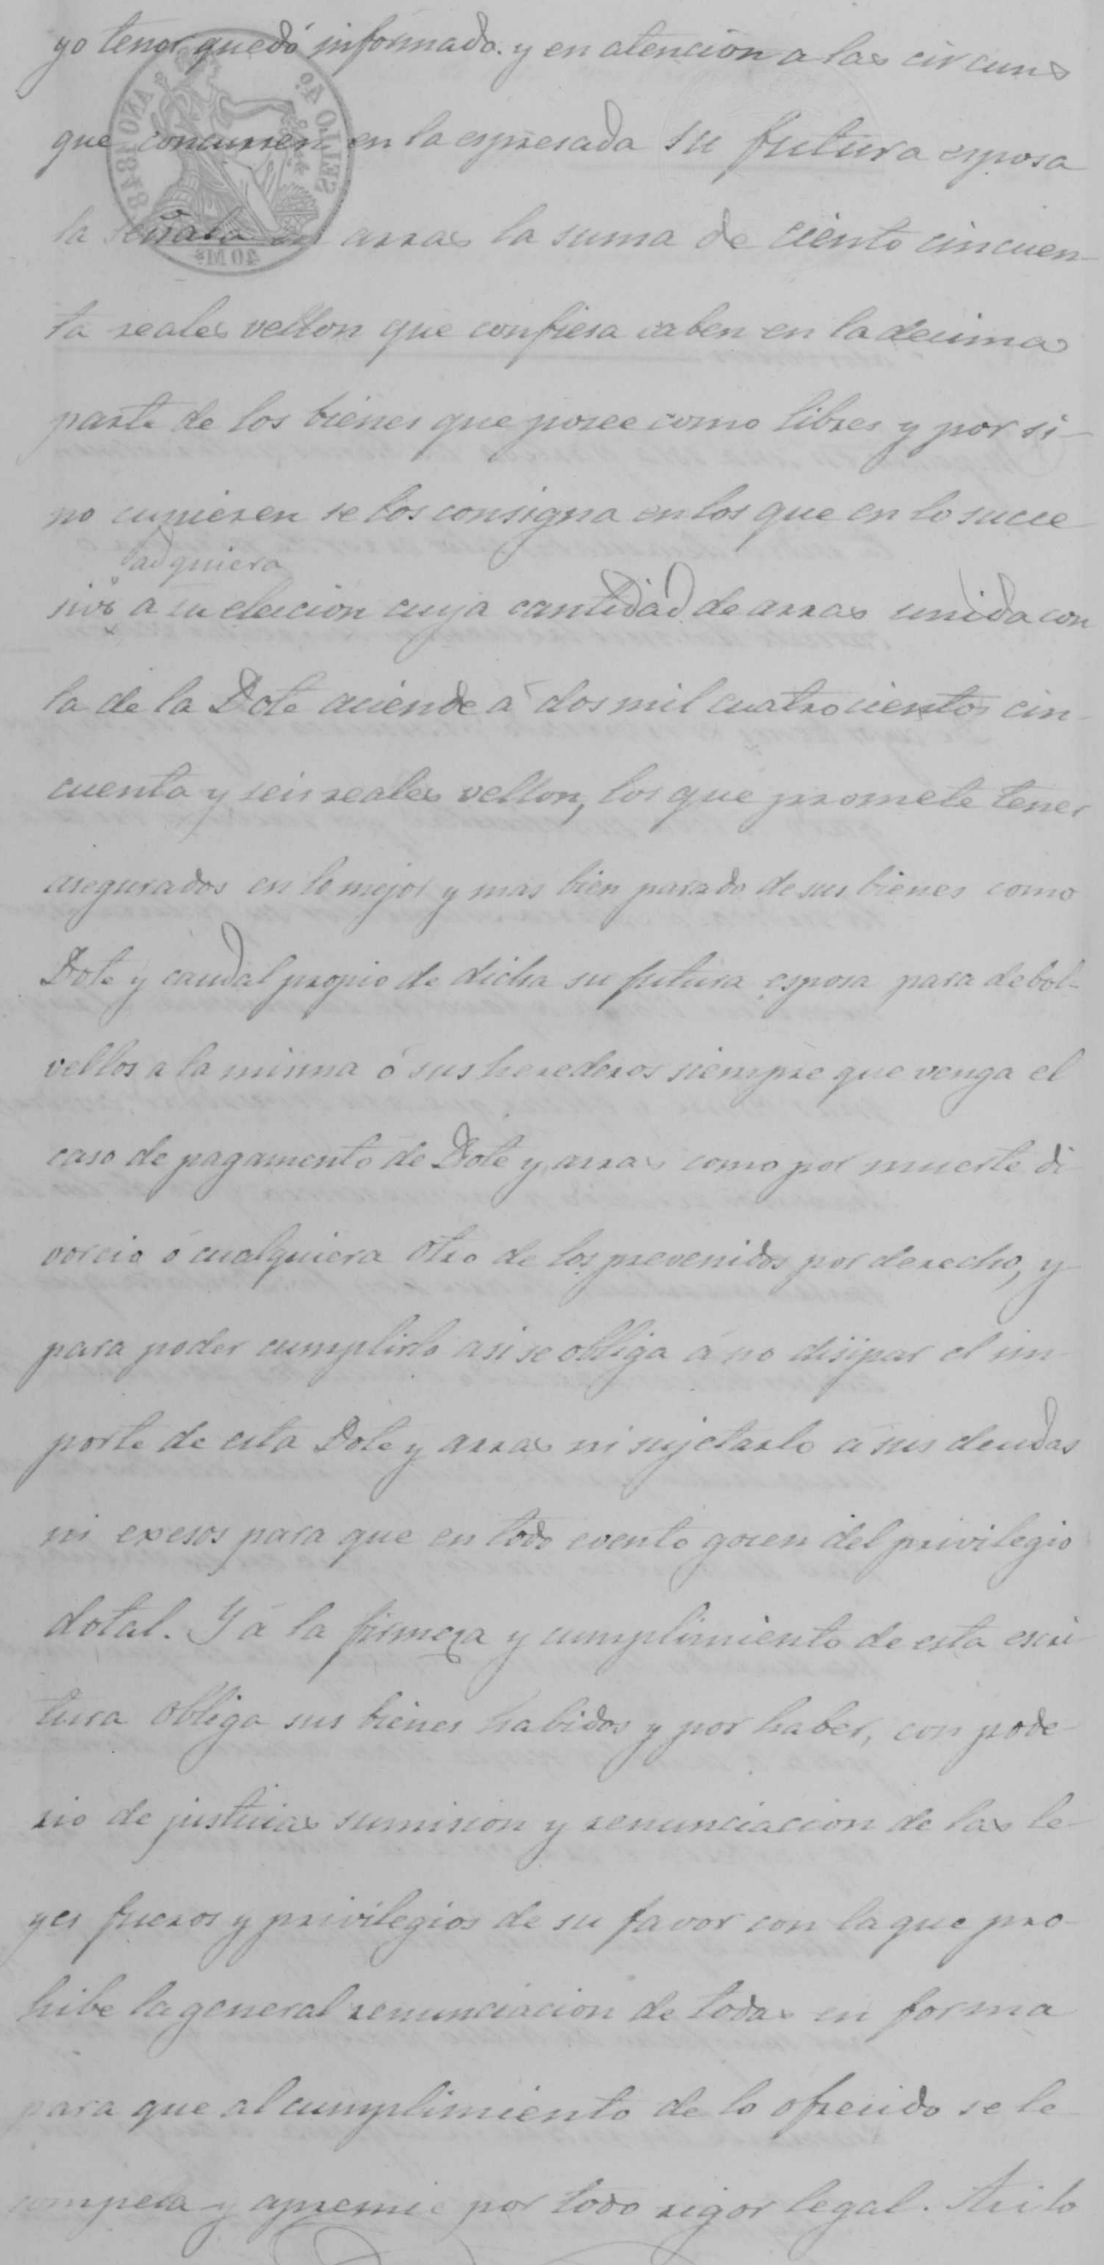 yo tenor quedó informado. y en atencion a las circuns
que concurren en la espresada su futura esposa
la señala en arras la suma de ciento cincuen-
ta reales vellon que confiesa caben en la decima
parte de los bienes que posee como libres y por si-
no cupieren se los consigna en los que en lo suce-
adquiera
sivo a su eleccion cuya cantidad de arras unida con
la de la Dote aciende á dos mil cuatrocientos cin-
cuenta y seis reales vellon, los que promete tener
asegurados en lo mejor y mas bien parado de sus bienes como
Dote y caudal propio de dicha su futura esposa para debol-
vellos a la misma ó sus herederos siempre que venga el
caso de pagamento de Dote y arras como por muerte di-
vorcio ó cualquiera otro de los prevenidos por derecho, y
para poder cumplirlo asi se obliga á no disipar el im-
porte de esta Dote y arras ni sujetarlo á sus deudas
ni exesos para que en todo evento gocen del privilegio
dotal. Y á la firmeza y cumplimiento de esta escri-
tura obliga sus bienes habidos y por haber, con pode-
rio de justicias sumision y renunciacion de las le-
yes fueros y privilegios de su favor con la que pro-
hibe la general renunciacion de todas en forma
para que al cumplimiento de lo ofrecido se le
compela y apremie por todo rigor legal. Asi lo
SELLO 4º
AÑO 1848.
40 Ms